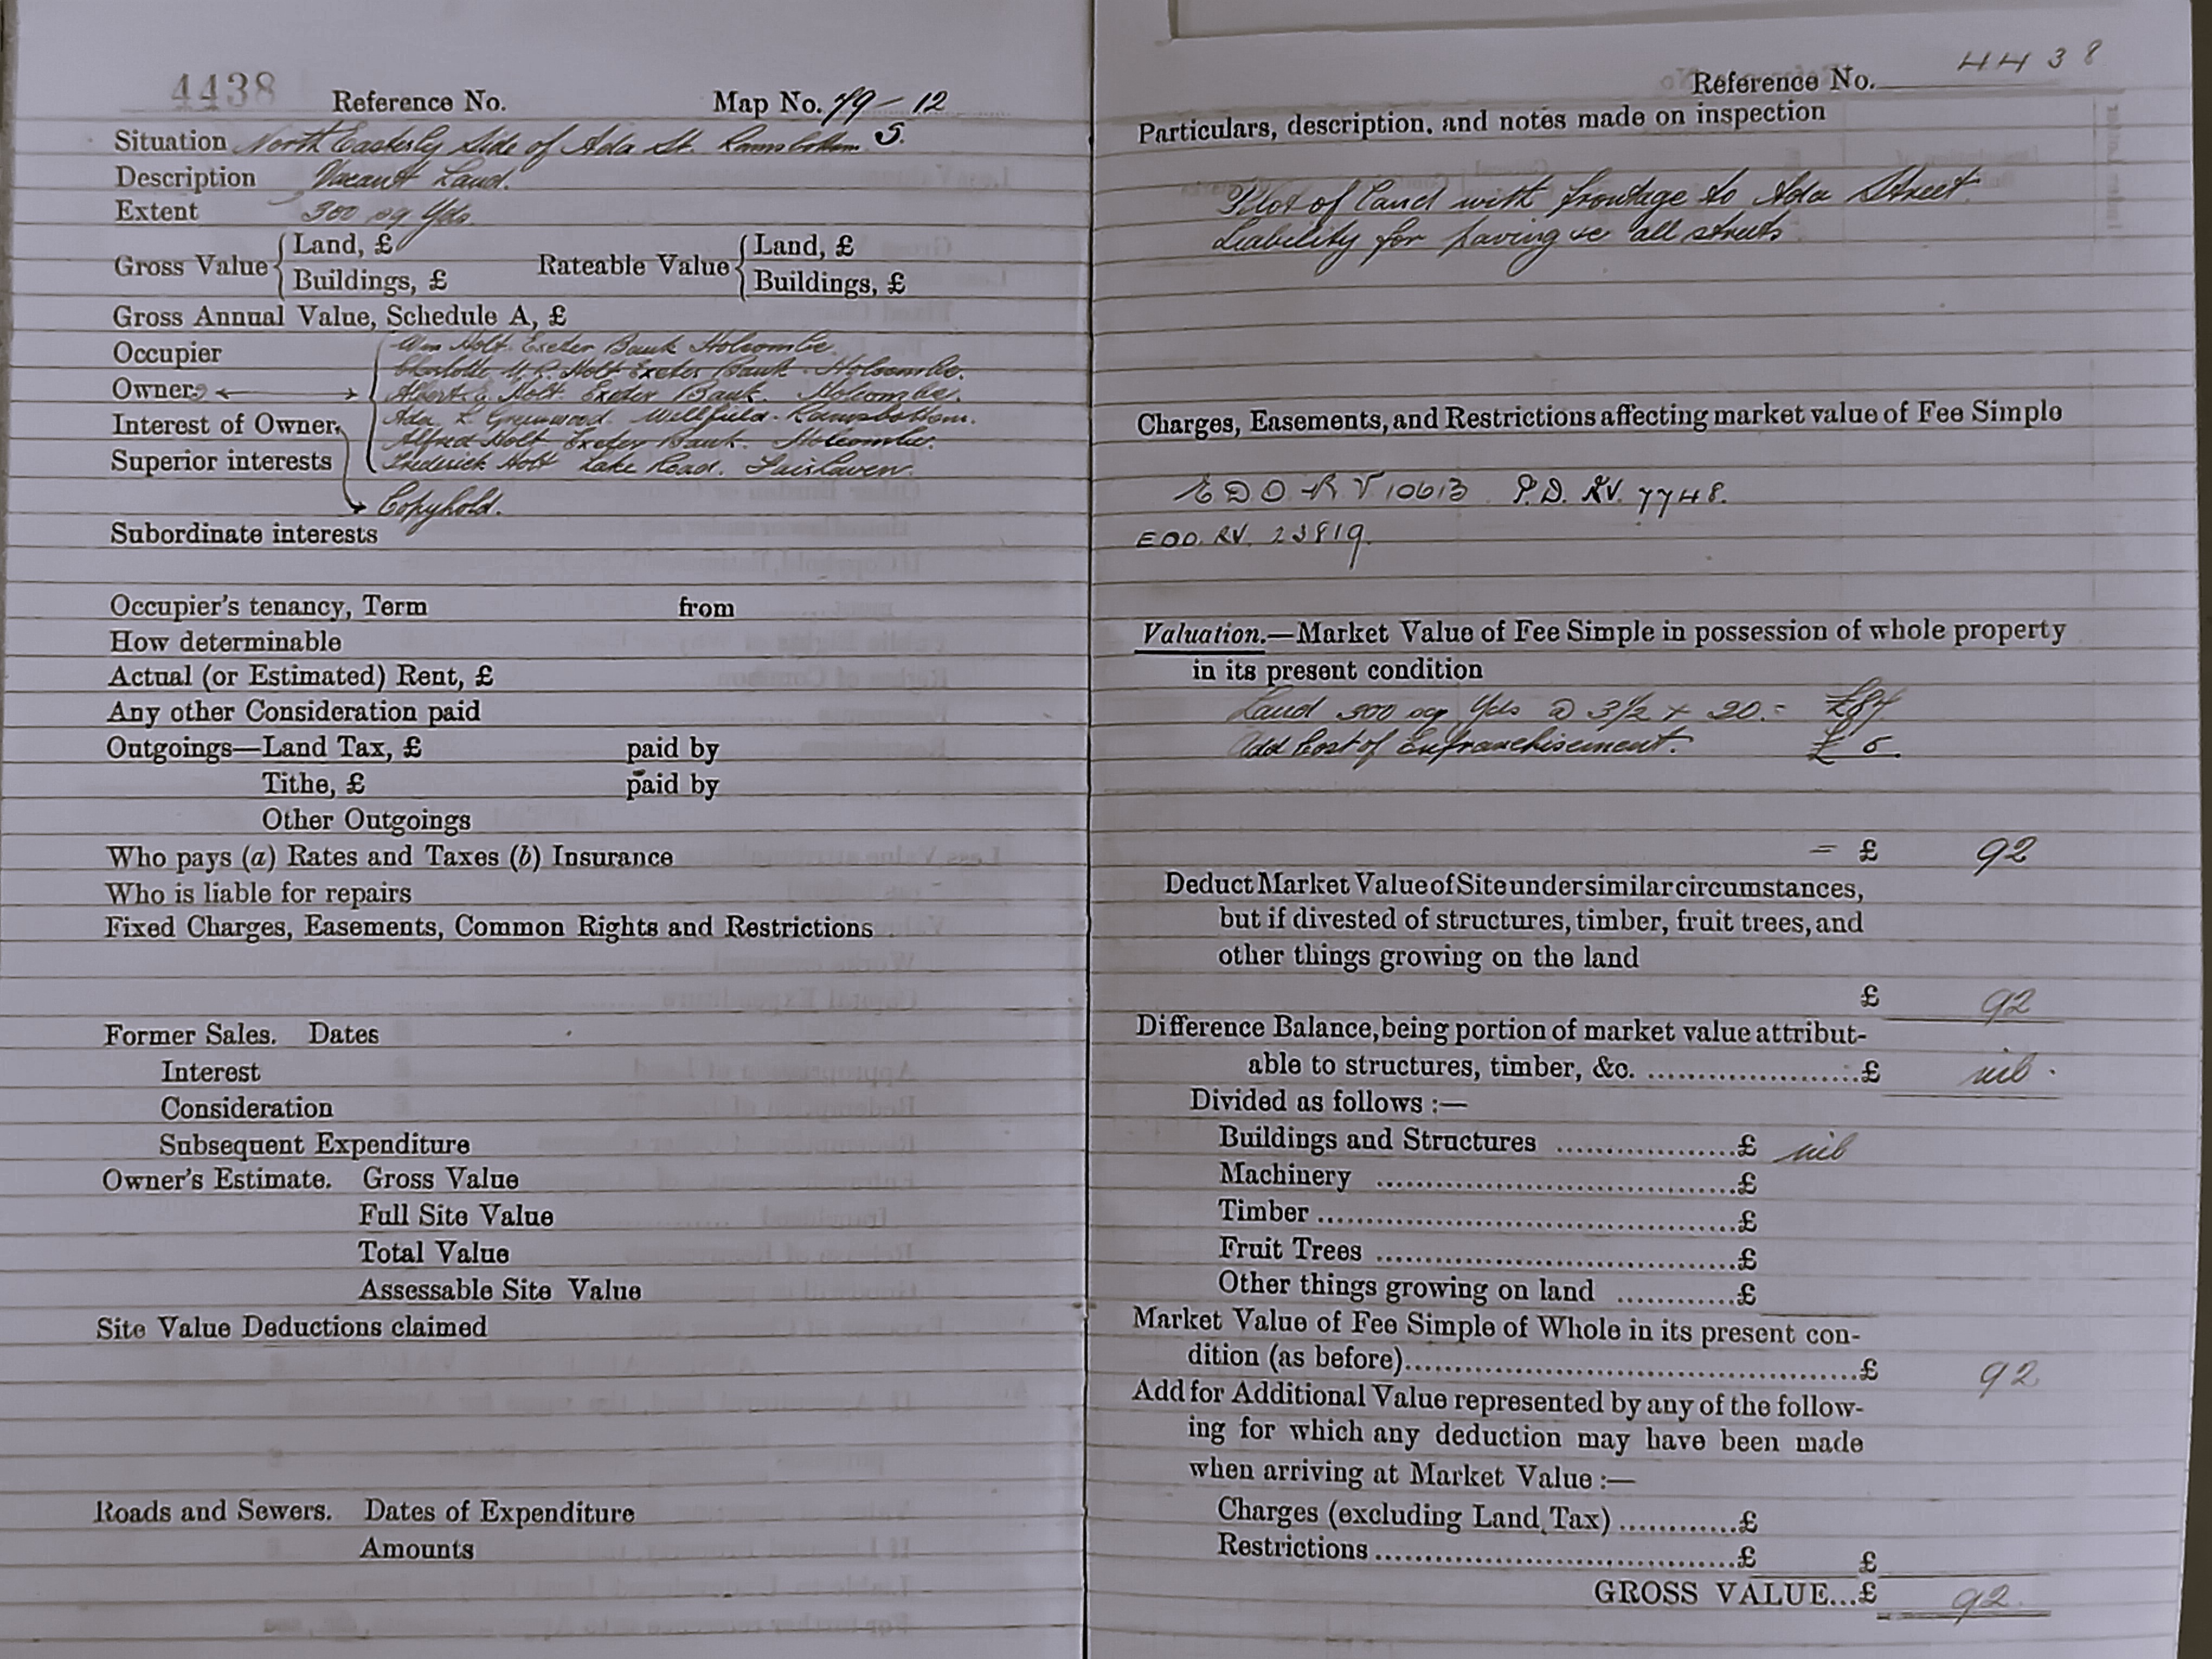 4438 Reference No. Map No. 79-12
Situation North Easterly Side of Ada St. Ramsbottom S.
Description Vacant Land.
Extent 300 sq Yds.
Gross Value { Land, £ Rateable Value { Land, £
Buildings, £ Buildings, £
Gross Annual Value, Schedule A, £
Occupier Wm Holt. Exeter Bank Holcombe.
Charlotte Holt Exeter Bank. Holcombe.
Owners Albert E. Holt. Exeter Bank. Holcombe.
Interest of Owner Ada L. Greenwood. Wellfield. Ramsbottom.
Alfred Holt. Exeter Bank. Holcombe.
Superior interests Frederick Holt Lake Road. Fairhaven.
Copyhold.
Subordinate interests
Occupier's tenancy, Term from
How determinable
Actual (or Estimated) Rent, £
Any other Consideration paid
Outgoings—Land Tax, £ paid by
Tithe, £ paid by
Other Outgoings
Who pays (a) Rates and Taxes (b) Insurance
Who is liable for repairs
Fixed Charges, Easements, Common Rights and Restrictions
Former Sales. Dates
Interest
Consideration
Subsequent Expenditure
Owner's Estimate. Gross Value
Full Site Value
Total Value
Assessable Site Value
Site Value Deductions claimed
Roads and Sewers. Dates of Expenditure
Amounts
Reference No. 4438
Particulars, description, and notes made on inspection
Plot of land with frontage to Ada Street.
Liability for paving &c all streets
Charges, Easements, and Restrictions affecting market value of Fee Simple
EDO RV 10613 P.D. RV. 7748.
EDO. RV. 23819.
Valuation.—Market Value of Fee Simple in possession of whole property
in its present condition
Land 300 sq Yds @ 3½ x 20. = £87
Add Cost of Enfranchisement. £ 5.
= £ 92
Deduct Market Value of Site under similar circumstances,
but if divested of structures, timber, fruit trees, and
other things growing on the land
£ 92
Difference Balance, being portion of market value attribut-
able to structures, timber, &c. ....................£ nil.
Divided as follows :—
Buildings and Structures .................£ nil
Machinery ..................................£
Timber ........................................£
Fruit Trees ..................................£
Other things growing on land ............£
Market Value of Fee Simple of Whole in its present con-
dition (as before)..............................................£ 92
Add for Additional Value represented by any of the follow-
ing for which any deduction may have been made
when arriving at Market Value :—
Charges (excluding Land Tax) ............£
Restrictions ..................................£ £
GROSS VALUE...£ 92.